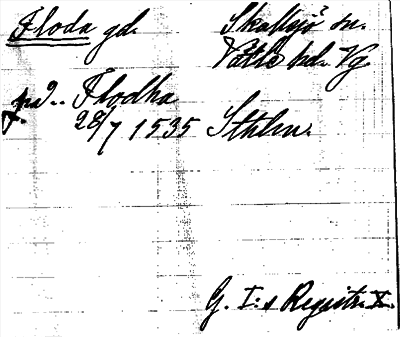 Floda gd. Skallsjö sn.
Vätle hd. Vg.
på .. Flodha
28/7 1535 Sthlm.
G. I:s Registr. X.